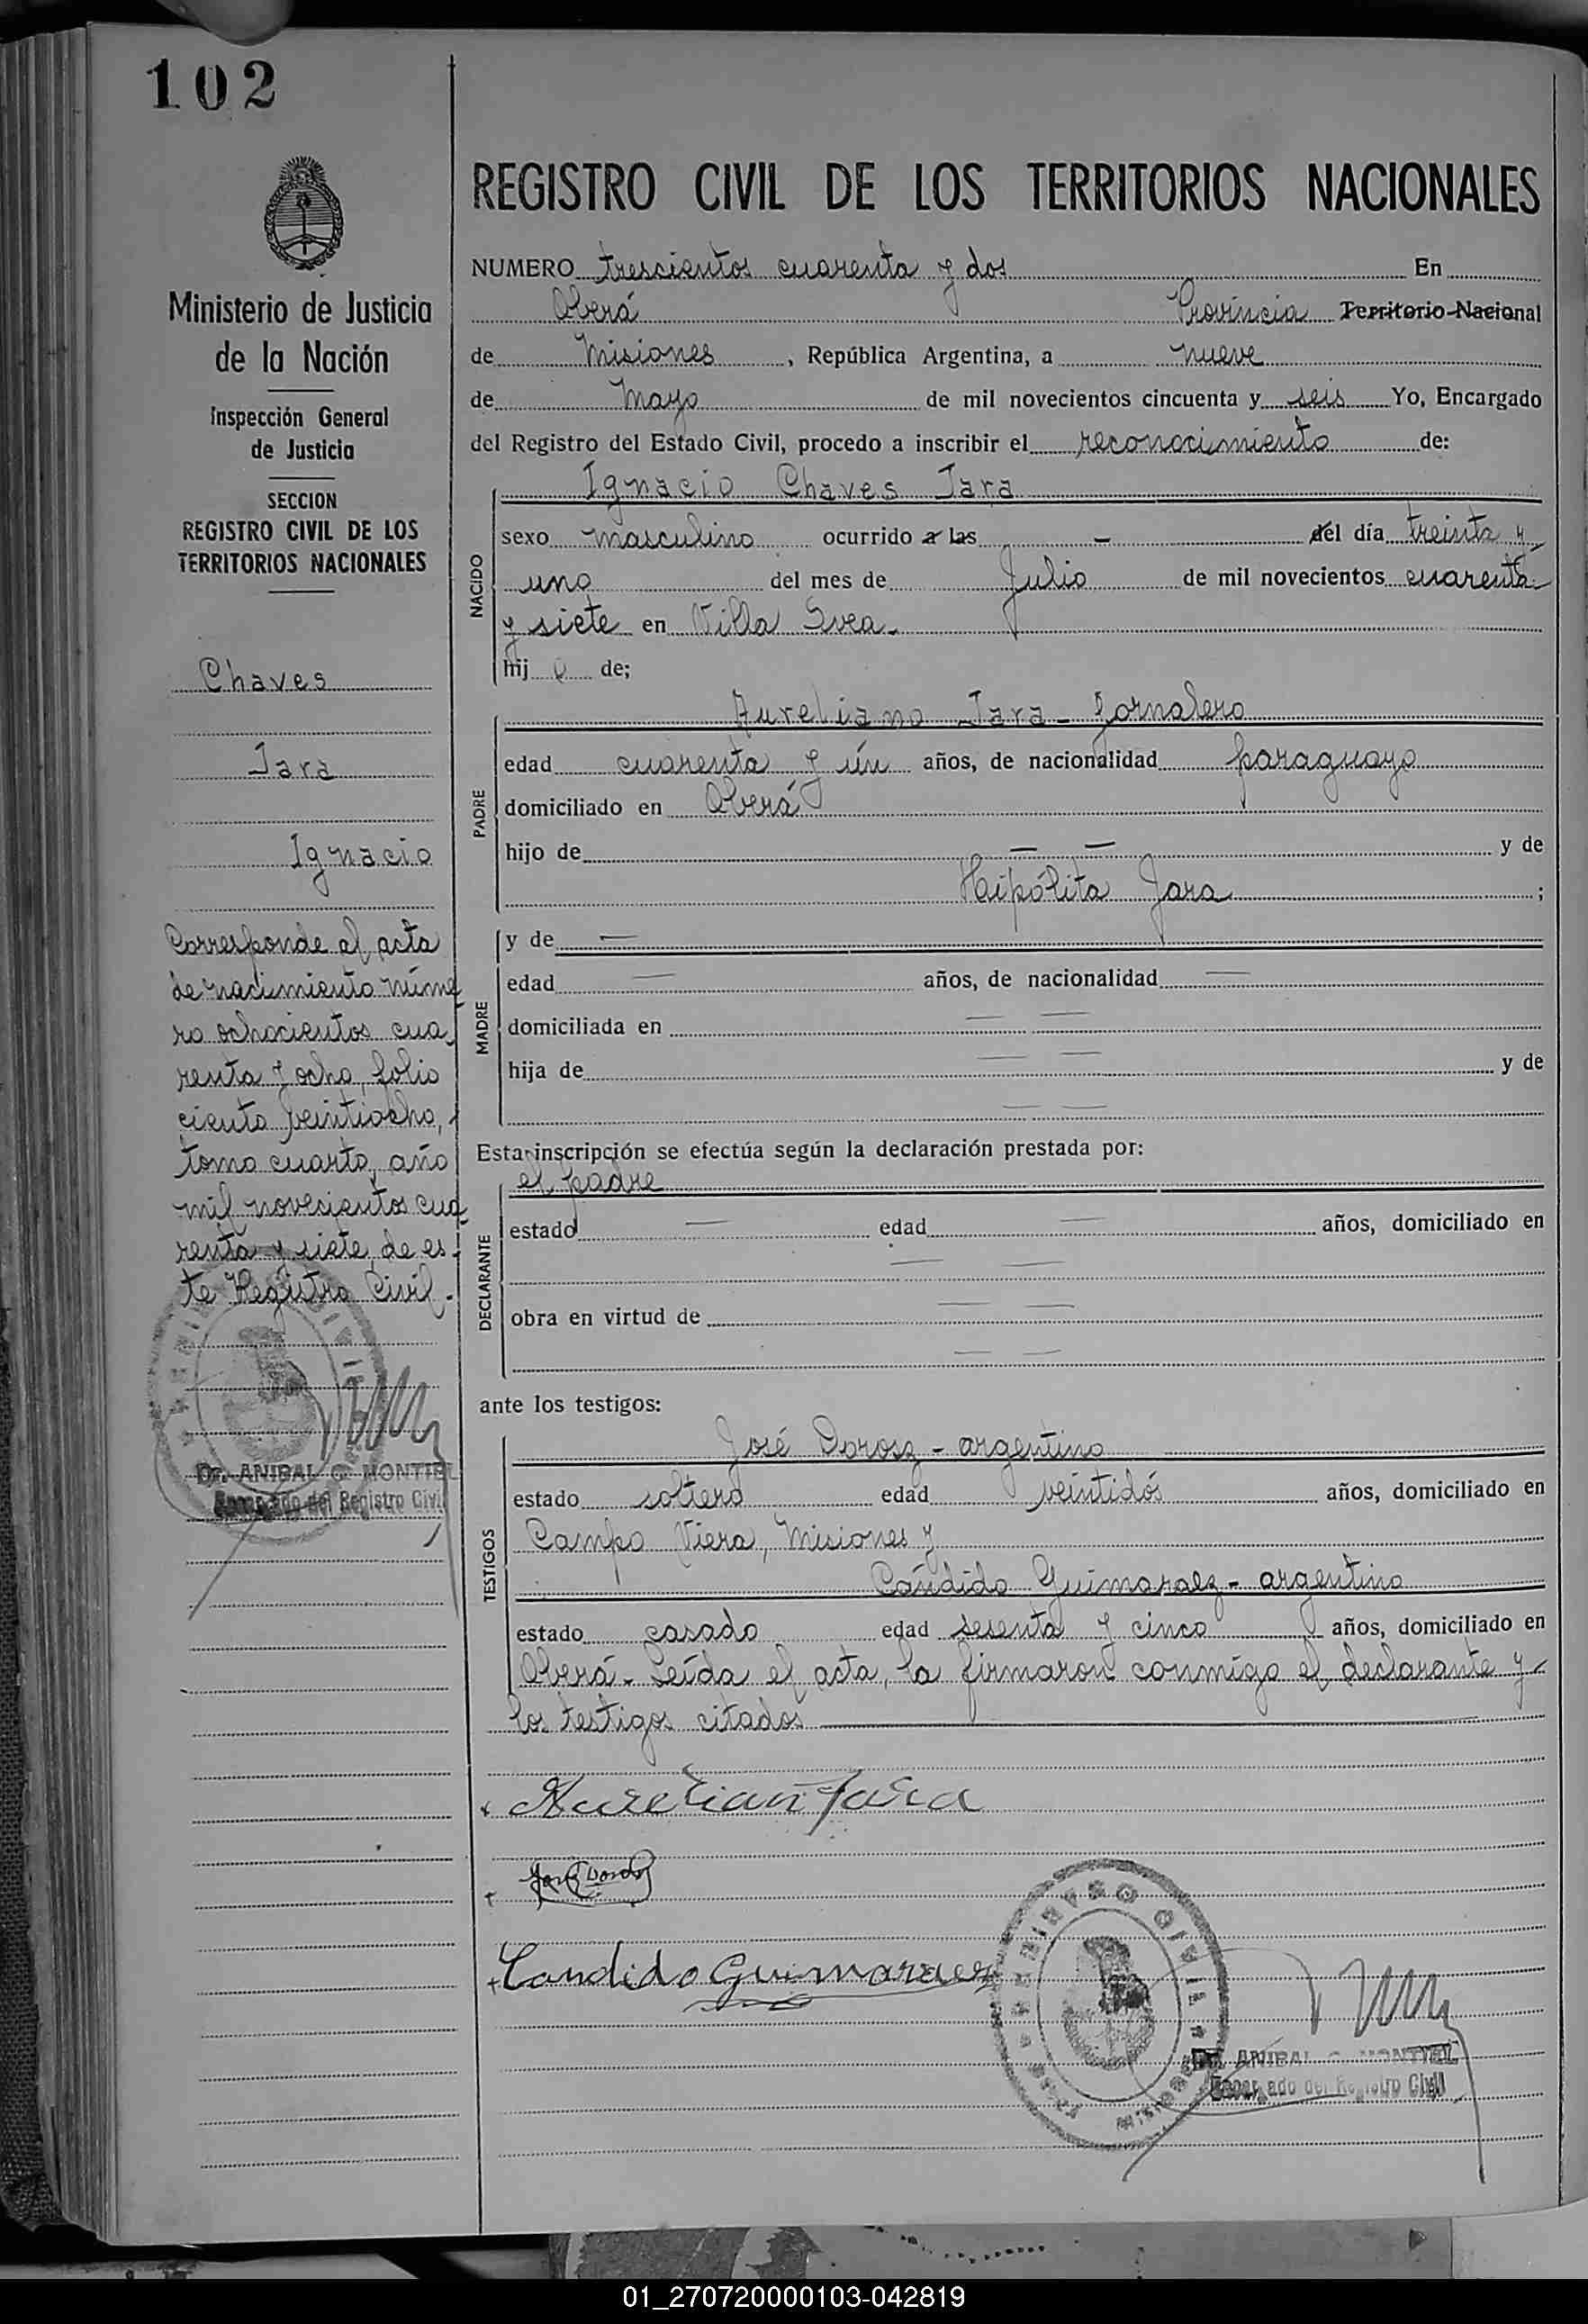 102
Ministerio de Justicia
de la Nación
Inspección General
de Justicia
SECCION
REGISTRO CIVIL DE LOS
TERRITORIOS NACIONALES
Chaves
Jara
Ignacio
Corresponde al acta
de nacimiento núme
ro ochocientos cua
renta y ocho, folio
ciento veintiocho,
tomo cuarto, año
mil novecientos cua
renta y siete, de es-
te Registro Civil.-
Dr. ANIBAL G. MONTIEL
Encargado del Registro Civil
REGISTRO CIVIL DE LOS TERRITORIOS NACIONALES
NUMERO trescientos cuarenta y dos En
Oberá Provincia Territorio Nacional
de Misiones, República Argentina, a nueve
de Mayo de mil novecientos cincuenta y seis Yo, Encargado
del Registro del Estado Civil, procedo a inscribir el reconocimiento de:
NACIDO
Ignacio Chaves Jara
sexo masculino ocurrido a las - del día treinta y
uno del mes de Julio de mil novecientos cuarenta
y siete en Villa Svea.-
hijo de;
PADRE
Aureliano Jara - Jornalero
edad cuarenta y ún años, de nacionalidad paraguayo
domiciliado en Oberá
hijo de — — y de
Haipólita Jara ;
MADRE
y de —
edad — años, de nacionalidad —
domiciliada en — —
hija de — — y de
— —
Esta inscripción se efectúa según la declaración prestada por:
DECLARANTE
el padre
estado — edad — años, domiciliado en
— —
obra en virtud de — —
— —
ante los testigos:
TESTIGOS
José Dorosz - argentino
estado soltero edad veintidós años, domiciliado en
Campo Viera, Misiones y
Cándido Guimaraez - argentino
estado casado edad sesenta y cinco años, domiciliado en
Oberá.- Leída el acta, la firmaron conmigo el declarante y
los testigos citados
Aurelian Jara
Candido Guimaraez
REGISTRO CIVIL
Dr. ANIBAL G. MONTIEL
Encargado del Registro Civil
01_270720000103-042819